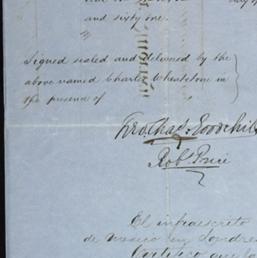 and sixty one.
Signed sealed and delivered by the
above named Charles Wheatstone in
the presence of
Geo. Chas. Goodchild
Robt. Price
El infraescrito
de Mexico en Londres